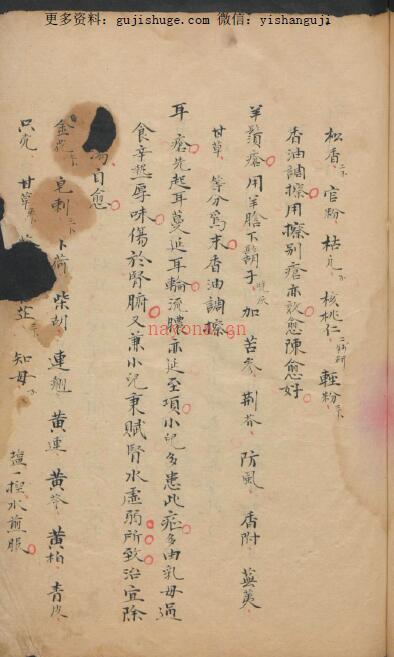 更多资料：gujishuge.com 微信：yishanguji
松香 官粉 枯凡 核桃仁 輕粉
香油調擦用擦別瘡亦效愈陳愈好
羊鬚瘡用羊膽下鬍子 加苦參 荆芥 防風 香附 蕪荑
甘草 等分為末香油調擦
耳瘡先起耳蔓延耳輪流膿亦延至項小兒多患此症多由乳母過
食辛熱厚味傷於腎腑又兼小兒秉賦腎水虛弱所致治宜除
自愈
金 皂刺 卜荷 柴胡 連翹 黄連 黄芩 黄柏 青皮
只壳 甘草 知母 塩一撮水煎服
national.cn